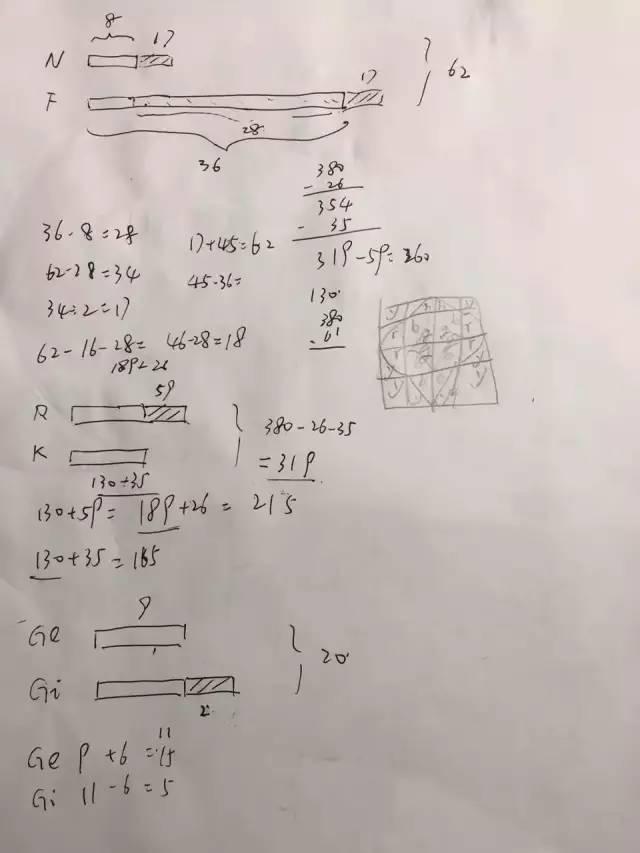 8
17
N
17
62
F
28
36
380
- 26
354
36 - 8 = 28
17+45=62
- 35
319-59=260
62-28=34
45-36=
34÷2=17
130
380
- 61
62-16-28= 46-28=18
189+26
59
R
380-26-35
K
=319
130+35
130+59= 189+26 = 215
130+35=165
9
Ge
20
Gi
2
11
Ge 9 +6 =15
Gi 11 -6 =5